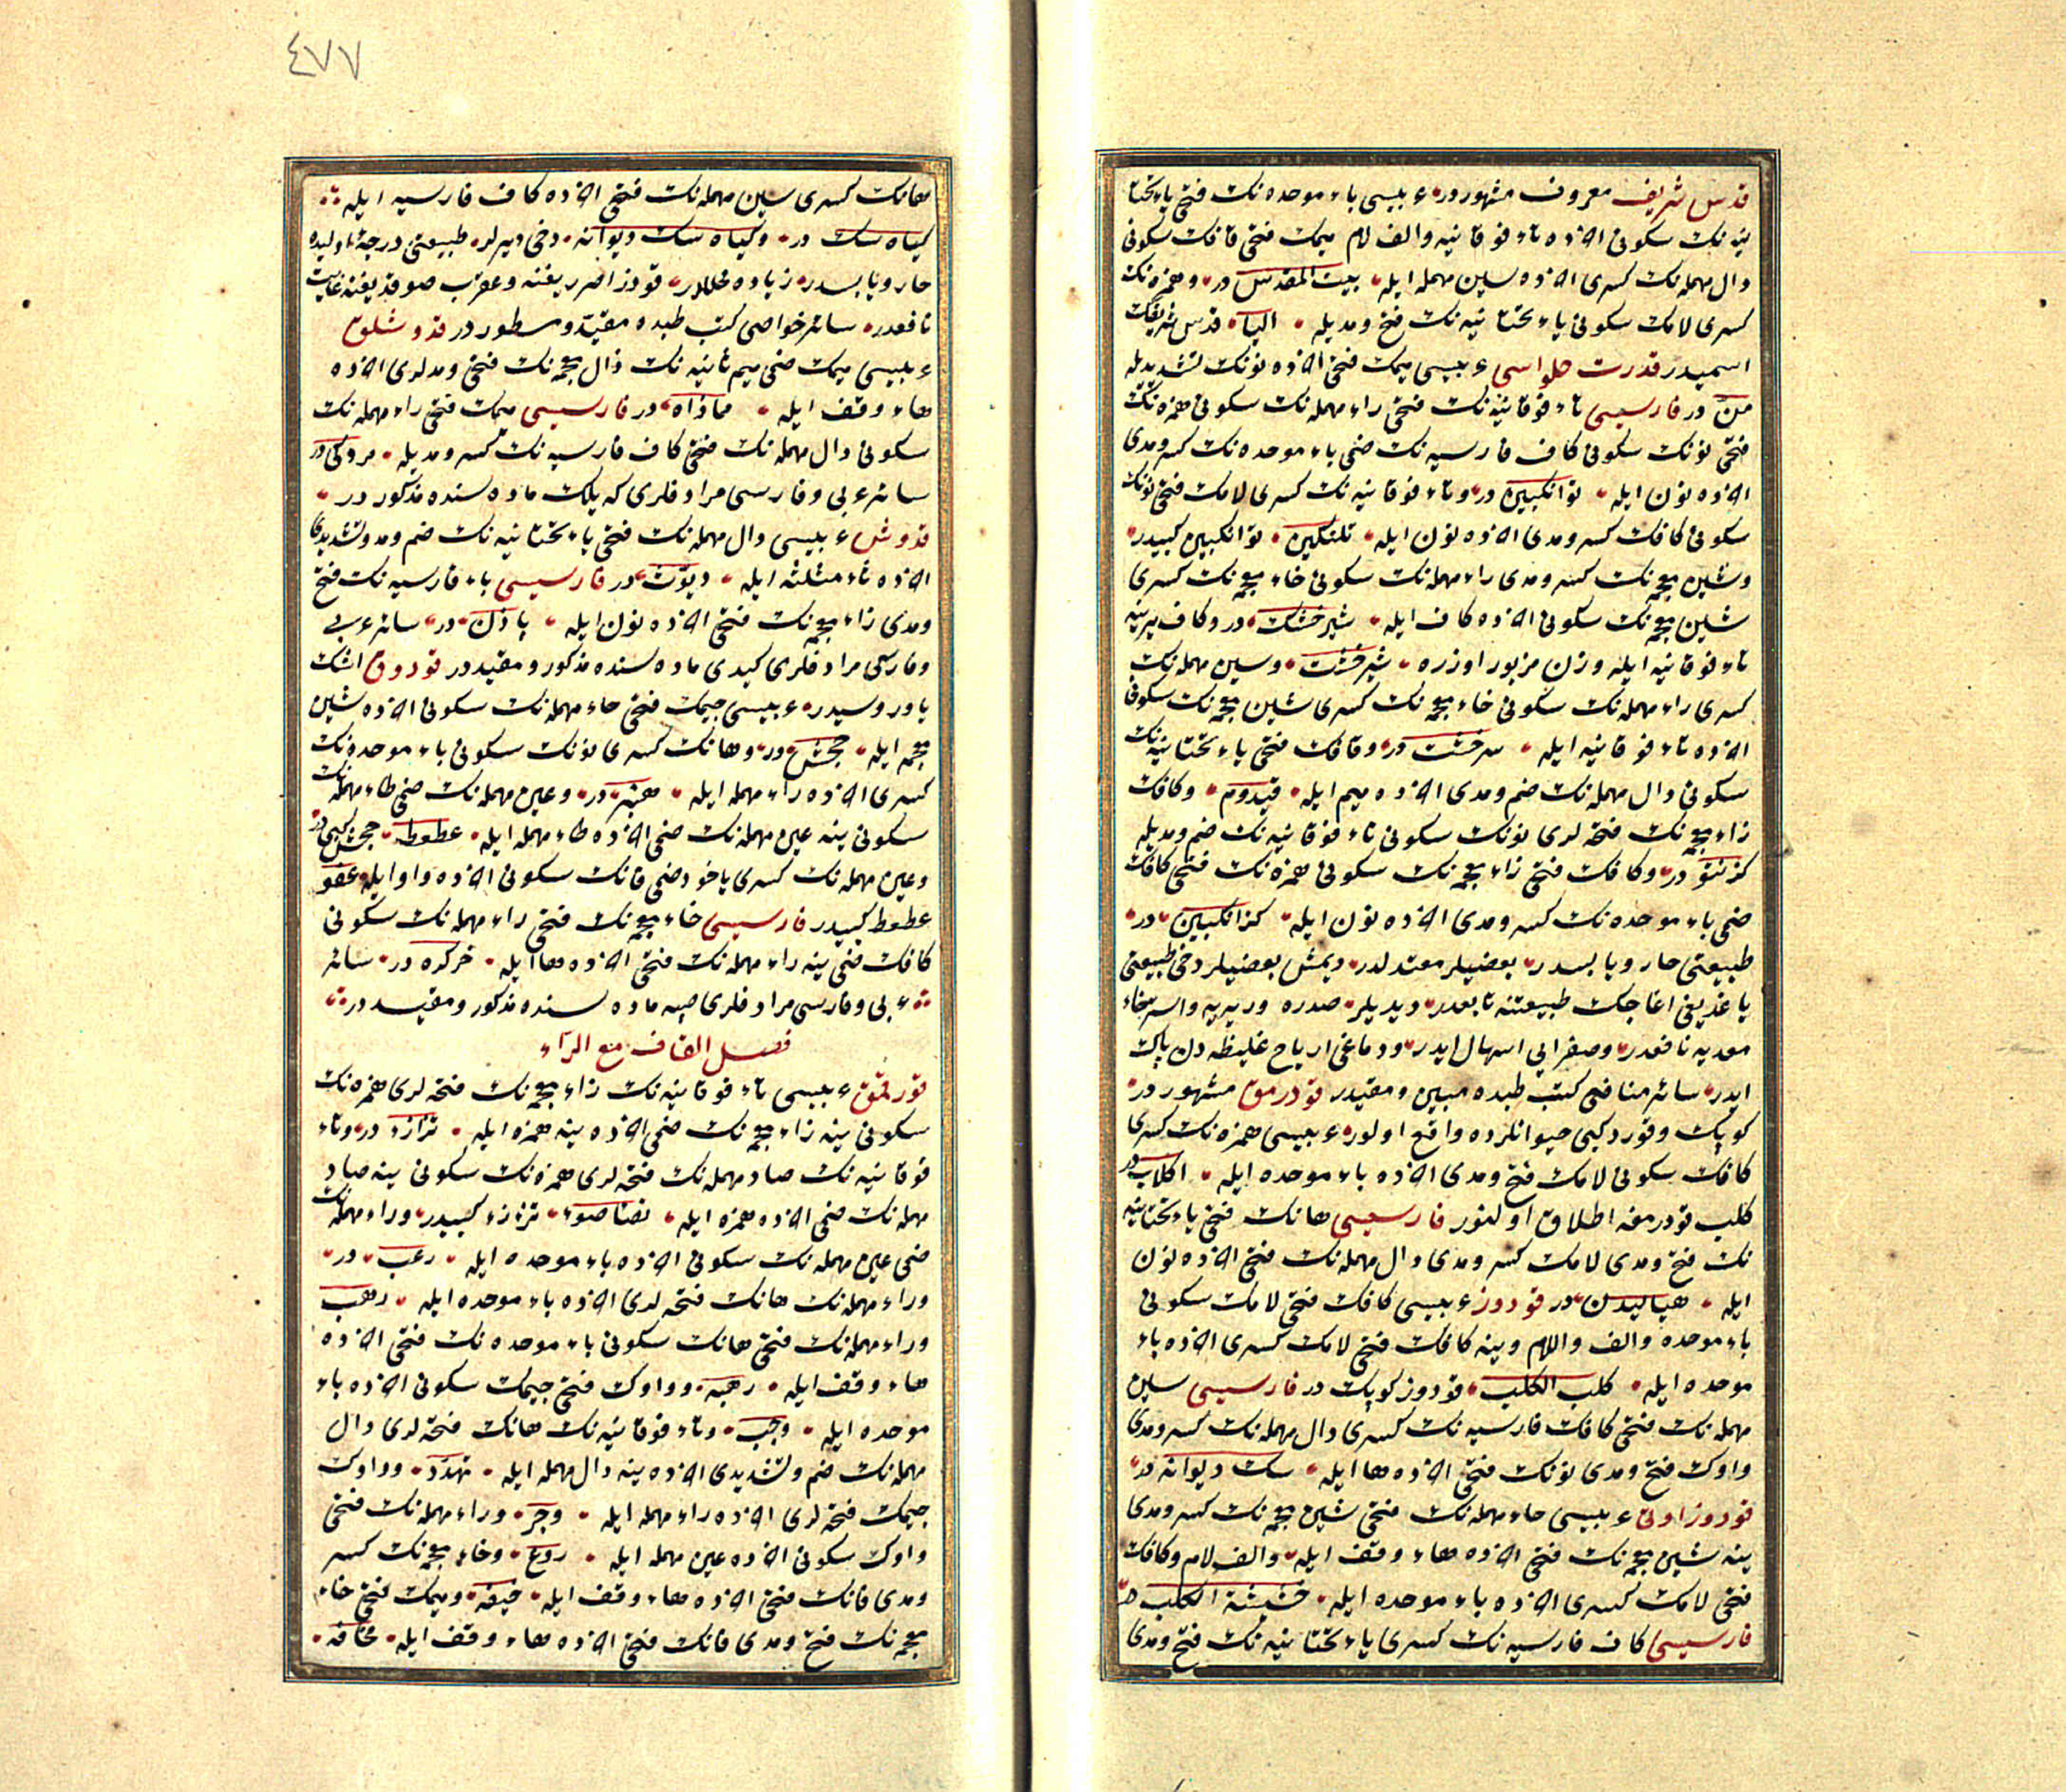 قدس شریف معروف مشهوردر عربیسی باء موحده نك فتحی یاء تحتا
نیه نك سكونی آخرده تاء فوقانیه والف لام میمك فتحی قافك سكونی
دال مهمله نك كسری آخرده سین مهمله ایله بیت المقدس در وهمزه نك
كسری لامك سكونی یاء تحتانیه نك فتح ومدیله ایلیا قدس شریفك
اسمیدر قدرت حلواسی عربیسی میمك فتحی آخرده نونك تشدیدیله
من در فارسیسی تاء فوقانیه نك فتحی راء مهمله نك سكونی همزه نك
فتحی نونك سكونی كاف فارسیه نك ضمی باء موحده نك كسر ومدی
آخرده نون ایله ترانكبین در وتاء فوقانیه نك كسری لامك فتحی نونك
سكونی كافك كسر ومدی آخرده نون ایله تلنكین ترانكبین كبیدر
وشین معجمه نك كسر ومدی راء مهمله نك سكونی خاء معجمه نك كسری
شین معجمه نك سكونی آخرده كاف ایله شیرخشك در وكاف یرینه
تاء فوقانیه ایله وزن مزبور اوزره شیرخشت وسین مهمله نك
كسری راء مهمله نك سكونی خاء معجمه نك كسری شین معجمه نك سكونی
آخرده تاء فوقانیه ایله سرخشت در وقافك فتحی یاء تحتانیه نك
سكونی دال مهمله نك ضم ومدی آخرده میم ایله قیدوم وكافك
زاء معجمه نك فتحه لری نونك سكونی تاء فوقانیه نك ضم ومدیله
كزنتو در وكافك فتحی زاء معجمه نك سكونی همزه نك فتحی كافك
ضمی باء موحده نك كسر ومدی آخرده نون ایله كزانكبین در
طبیعتی حار ویابسدر بعضیلر معتدلدر دیمش بعضیلر دخی طبیعتی
یاغدیغی اغاجك طبیعتنه تابعدر دیدیلر صدره وریه یه واسترخاء
معدیه نافعدر وصفرایی اسهال ایدر ودماغی اریاح غلیظه دن پاك
ایدر سائر منافعی كتب طبده مبین ومقیددر قودرمق مشهوردر
كوپك وقورد كبی حیوانلرده واقع اولور عربیسی همزه نك كسری
كافك سكونی لامك فتح ومدی آخرده باء موحده ایله اكلاب در
كلب قودرمغه اطلاق اولنور فارسیسی هانك فتحی یاء تحتانیه
نك فتح ومدی لامك كسر ومدی دال مهمله نك فتحی آخرده نون
ایله هیالیدن در قودوز عربیسی كافك فتحی لامك سكونی
باء موحده والف واللام وینه كافك فتحی لامك كسری آخرده باء
موحده ایله كلب الكلب قودوز كوپك در فارسیسی سین
مهمله نك فتحی كافك فارسیه نك كسری دال مهمله نك كسر ومدی
واوك فتح ومدی نونك فتحی آخرده ها ایله سك دیوانه در
قودوز اوتی عربیسی حاء مهمله نك فتحی شین معجمه نك كسر ومدی
ینه شین معجمه نك فتحی آخرده هاء وقف ایله والف لام وكافك
فتحی لامك كسری آخرده باء موحده ایله حشیشة الكلب در
فارسیسی كاف فارسیه نك كسری یاء تحتانیه نك فتح ومدی
٤٧٧
هانك كسری سین مهمله نك فتحی آخرده كاف فارسیه ایله
كیاه سك در وكیاه سك دیوانه دخی دیرلر طبیعتی درجۀ اولیده
حار ویابسدر زیاده محللدر قودز اصردیغنه وعقرب صوقدیغنه غایت
نافعدر سائر خواصی كتب طبده مقید ومسطوردر قدوشلق
عربیسی میمك ضمی میم ثانیه نك ذال معجمه نك فتحی ومدلری آخرده
هاء وقف ایله مماذاه در فارسیسی میمك فتحی راء مهمله نك
سكونی دال مهمله نك ضمی كاف فارسیه نك كسر ومدیله مردكی در
سائر عربی وفارسی مرادفلری كه پلك ماده سنده مذكوردر
قدوش عربیسی دال مهمله نك فتحی یاء تحتانیه نك ضم ومد وتشدیدی
آخرده ثاء مثلثه ایله دیوث در فارسیسی باء فارسیه نك فتح
ومدی زاء معجمه نك فتحی آخرده نون ایله پازن در سائر عربی
وفارسی مرادفلری كیدی ماده سنده مذكور ومقیددر قودوق اشك
یاوروسیدر عربیسی جیمك فتحی حاء مهمله نك سكونی آخرده شین
معجمه ایله جحش در وهانك كسری نونك سكونی باء موحده نك
كسری آخرده راء مهمله ایله هنبر در وعین مهمله نك ضمی طاء مهمله نك
سكونی ینه عین مهمله نك ضمی آخرده طاء مهمله ایله عطعط جحش كبی در
وعین مهمله نك كسری یاخود ضمی فانك سكونی آخرده واو ایله عفو
عطعط كبیدر فارسیسی خاء معجمه نك فتحی راء مهمله نك سكونی
كافك ضمی ینه راء مهمله نك فتحی آخرده ها ایله خركره در سائر
عربی وفارسی مرادفلری صپه ماده سنده مذكور ومقیددر
فصل القاف مع الراء
قورقمق عربیسی تاء فوقانیه نك زاء معجمه نك فتحه لری همزه نك
سكونی ینه زاء معجمه نك ضمی آخرده ینه همزه ایله تزأزء در وتاء
فوقانیه نك صاد مهمله نك فتحه لری همزه نك سكونی ینه صاد
مهمله نك ضمی آخرده همزه ایله تصأصؤ تزأزء كبیدر وراء مهمله نك
ضمی عین مهمله نك سكونی آخرده باء موحده ایله رعب در
وراء مهمله نك هانك فتحه لری آخرده باء موحده ایله رهب
وراء مهمله نك فتحی هانك سكونی باء موحده نك فتحی آخرده
هاء وقف ایله رهبه وواوك فتحی جیمك سكونی آخرده باء
موحده ایله وجب وتاء فوقانیه نك هانك فتحه لری دال
مهمله نك ضم وتشدیدی آخرده ینه دال مهمله ایله تهدد وواوك
جیمك فتحه لری آخرده راء مهمله ایله وجر وراء مهمله نك فتحی
واوك سكونی آخرده عین مهمله ایله روع وخاء معجمه نك كسر
ومدی فانك فتحی آخرده هاء وقف ایله خیفه ومیمك فتحی خاء
معجمه نك فتح ومدی فانك فتحی آخرده هاء وقف ایله مخافه